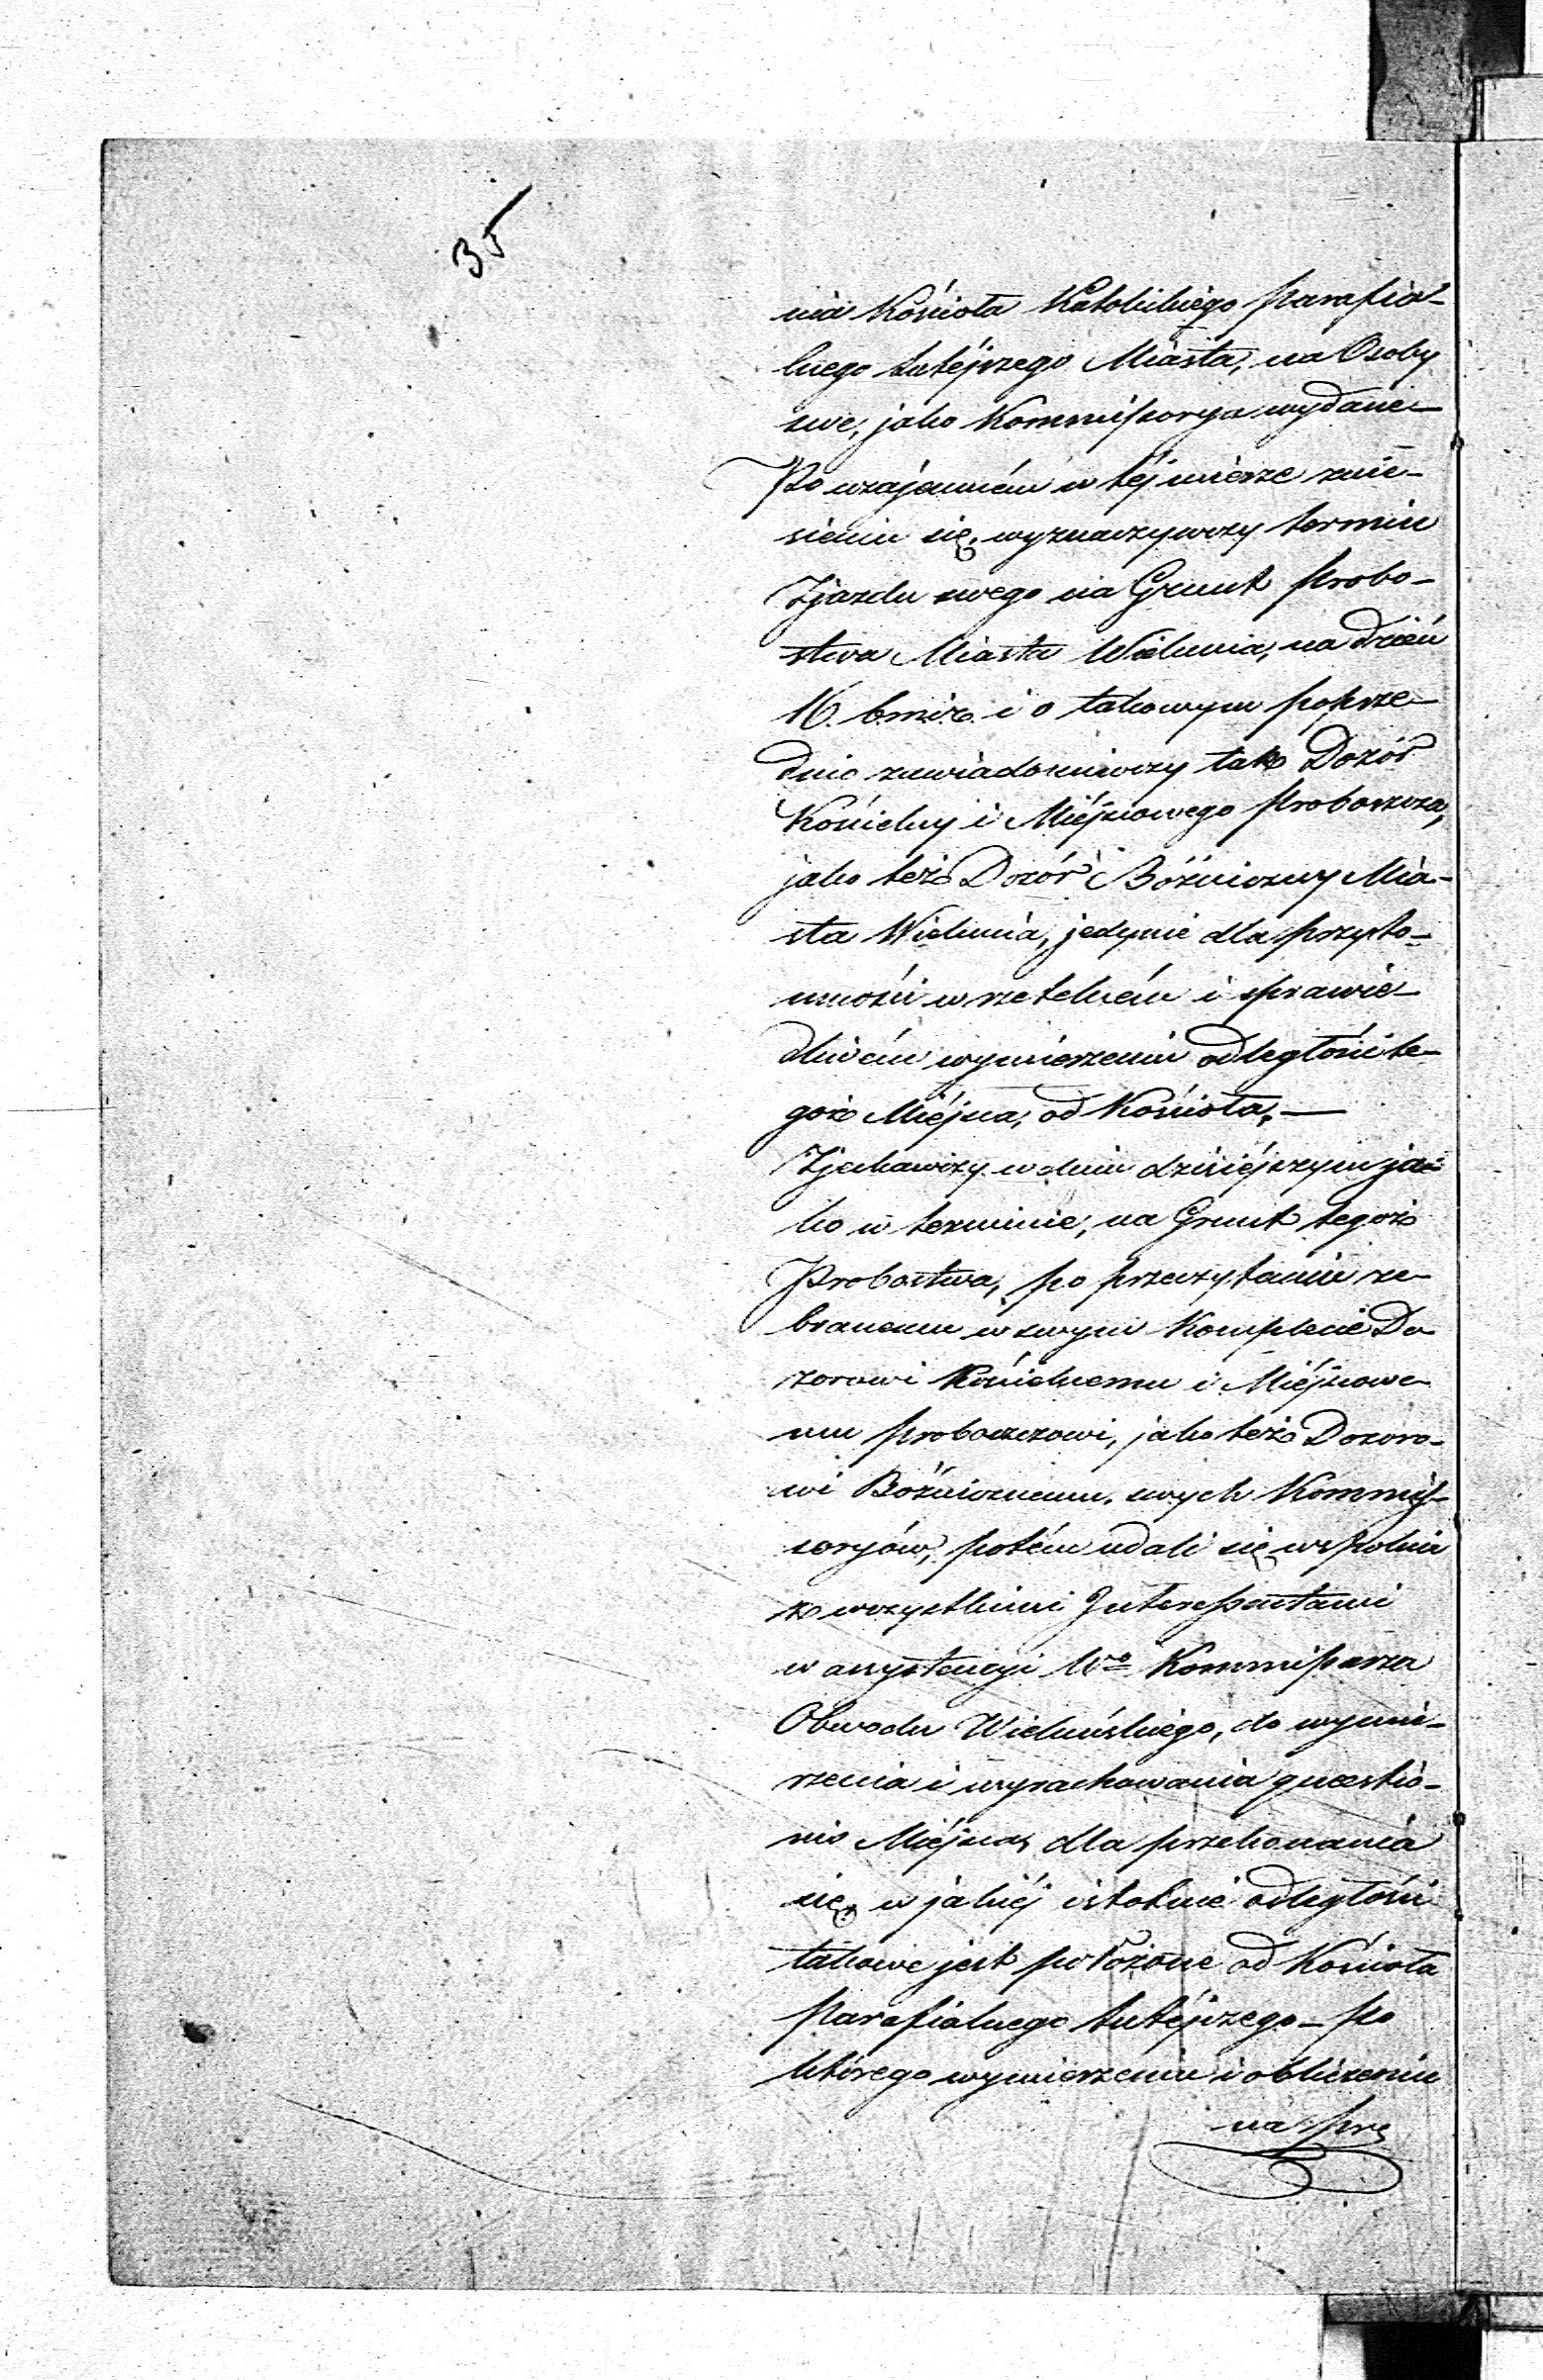 35
nia Kościoła Katolickiego parafial-
lnego tutéjszego Miasta, na Osoby
swe, jako Kommissorya wydane—
Po wzajemném w téj mierze znie-
sieniu się, wyznaczywszy termin
Zjazdu swego na Grunt probo-
stwa Miasta Wielunia, na dzień
16. bmiż. i o takowym poprze-
dnio zawiadomiwszy tak Dozór
Kościelny i Miéjscowego proboszcza,
jako też Dozór Bóżniczny Mia-
sta Wielunia, jedynie dla przyto-
mności w rzetelném i sprawie-
dliwém wymierzeniu odległości te-
goż Miéjsca, od Kościoła.—
Zjechawszy w dniu dzisiéjszym ja-
ko w terminie, na Grunt tegoż
Probostwa, po przeczytaniu ze-
branemu w swym Komplecie Do
zorowi Kościelnemu i Miéjscowe
mu proboszczowi, jako też Dozoro-
wi Bóżnicznemu, swych Kommis-
soryów, potém udali się wspolnie
z wszystkiemi Interessantami
w assystencyi Wo Kommissarza
Obwodu Wieluńskiego, do wymie-
rzenia i wyrachowania questio-
nis Miéjsca, dla przekonania
się, w jakiéj istotnie odległości
takowe jest położone od Kościoła
parafialnego tutéjszego— po
którego wymierzeniu i obliczeniu
na prę